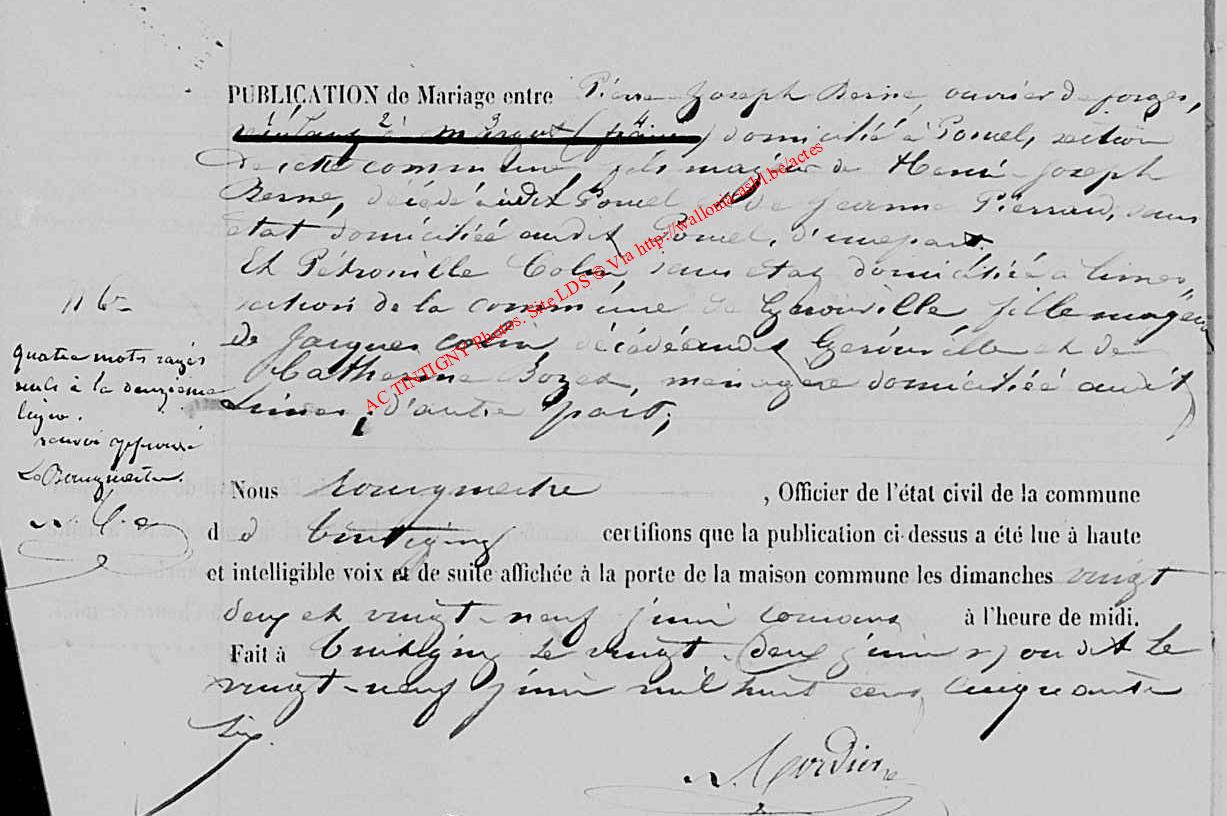 PUBLICATION de Mariage entre Pierre Joseph Berne, ouvrier de forges,
domicilié à Poncel, section
de cette commune, fils majeur de Henri-Joseph
Berne, décédé audit Poncel et de Jeanne Pierrard, sans
état domiciliée audit Poncel, d'une part
Et Pétronille Colin sans état domiciliée à Limes,
section de la commune de Gérouville fille majeure
de Jacques Colin décédé audit Gérouville et de
Catherine Bozet, menagère domiciliée audit
Limes, d'autre part,
116
quatre mots rayés
nuls à la deuxième
ligne.
renvoi approuvé
Le Bourgmestre.
Nous Bourgmestre , Officier de l'état civil de la commune
d e Tintigny certifions que la publication ci-dessus a été lue à haute
et intelligible voix et de suite affichée à la porte de la maison commune les dimanches vingt
deux et vingt-neuf juin courant à l'heure de midi.
Fait à Tintigny le vingt-deux juin et le
vingt-neuf juin mil huit cent cinquante
six.
AC TINTIGNY Photos. Site LDS © Via http://walloniasasbl.be/actes